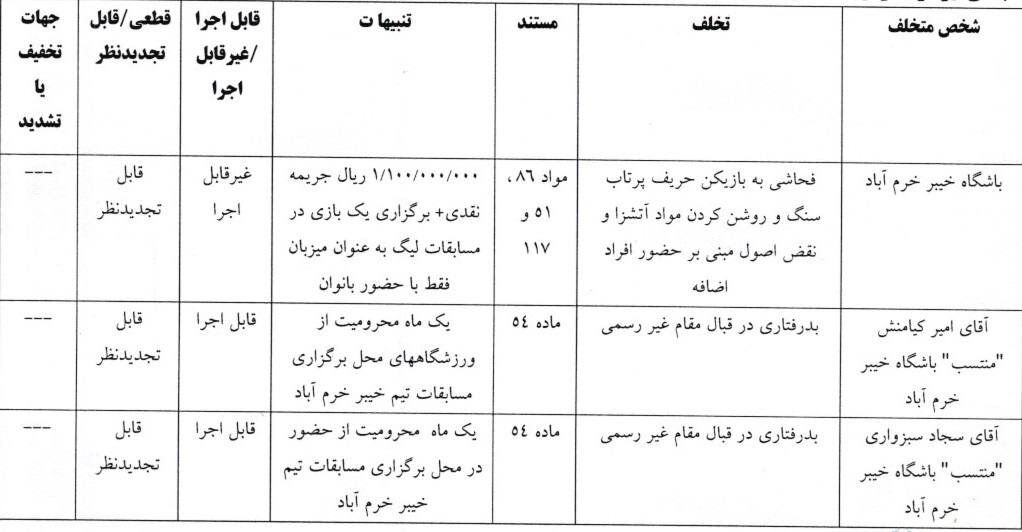 شخص متخلف
تخلف
مستند
تنبیها ت
قابل اجرا
/غیرقابل
اجرا
قطعی/قابل
تجدیدنظر
جهات
تخفیف
یا
تشدید
باشگاه خیبر خرم آباد
فحاشی به بازیکن حریف پرتاب
سنگ و روشن کردن مواد آتشزا و
نقض اصول مبنی بر حضور افراد
اضافه
مواد ۸۶ ،
۵۱ و
۱۱۷
۱/۱۰۰/۰۰۰/۰۰۰ ریال جریمه
نقدی+ برگزاری یک بازی در
مسابقات لیگ به عنوان میزبان
فقط با حضور بانوان
غیرقابل
اجرا
قابل
تجدیدنظر
---
آقای امیر کیامنش
"منتسب" باشگاه خیبر
خرم آباد
بدرفتاری در قبال مقام غیر رسمی
ماده ٥٤
یک ماه محرومیت از
ورزشگاههای محل برگزاری
مسابقات تیم خیبر خرم آباد
قابل اجرا
قابل
تجدیدنظر
---
آقای سجاد سبزواری
"منتسب" باشگاه خیبر
خرم آباد
بدرفتاری در قبال مقام غیر رسمی
ماده ٥٤
یک ماه محرومیت از حضور
در محل برگزاری مسابقات تیم
خیبر خرم آباد
قابل اجرا
قابل
تجدیدنظر
---